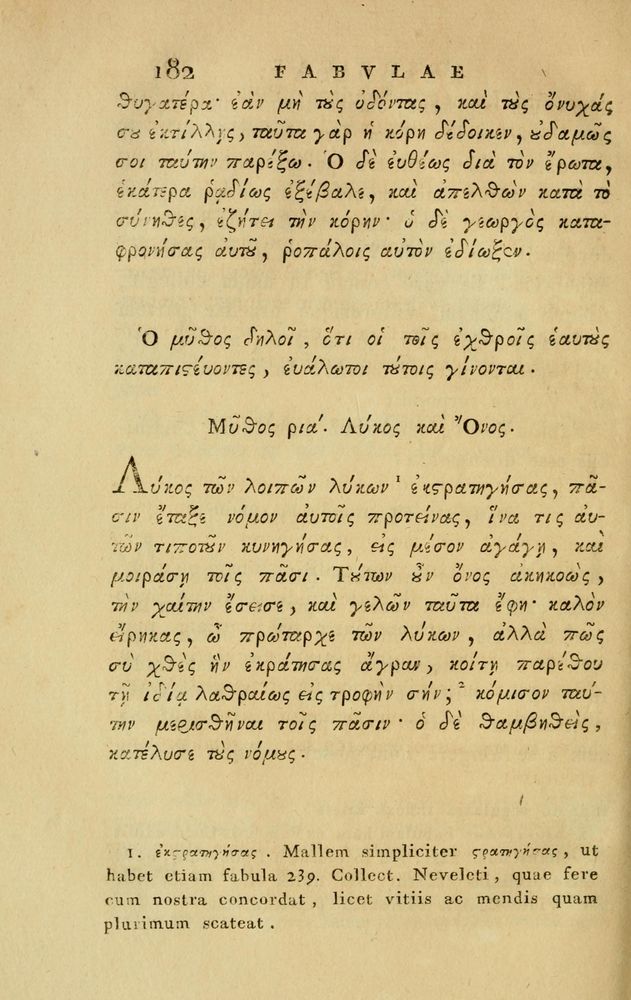 182 FABVLAE
θυγατέρα· ἐὰν μὴ τȣ̀ς ὀδόντας, καὶ τȣ̀ς ὄνυχάς
σȣ ἐκτίλλῃς, ταῦτα γὰρ ἡ κόρη δέδοικεν, ȣ̓δαμῶς
σοι ταύτην παρέξω. Ὁ δὲ ἐυθέως διὰ τὸν ἔρωτα,
ἑκάτερα ῥαδίως ἐξέβαλε, καὶ ἀπελθὼν κατὰ τὸ
σύνηθες, ἐζήτει τὴν κόρην· ὁ δὲ γεωργὸς κατα-
φρονήσας ἀυτȣ͂, ῥοπάλοις αὐτὸν ἐδίωξεν.
Ὁ μῦθος δηλοῖ, ὅτι οἱ τοῖς ἐχθροῖς ἑαυτȣ̀ς
καταπιϛέυοντες, ἐυάλωτοι τȣ́τοις γίνονται.
Μῦθος ρια΄. Λύκος καὶ Ὄνος.
Λύκος τῶν λοιπῶν λύκων¹ ἐκϛρατηγήσας, πᾶ-
σιν ἔταξε νόμον ἀυτοῖς προτείνας, ἵνα τις ἀυ-
τῶν τιποτοῦν κυνηγήσας, εἰς μέσον ἀγάγῃ, καὶ
μοιράσῃ τοῖς πᾶσι. Τȣ́των ȣ͂ν ὄνος ἀκηκοὼς,
τὴν χαίτην ἔσεισε, καὶ γελῶν ταῦτα ἔφη· καλὸν
ἔιρηκας, ὦ πρώταρχε τῶν λύκων, ἀλλὰ πῶς
σὺ χθὲς ἣν ἐκράτησας ἄγραν, κοίτῃ παρέθου
τῇ ἰδίᾳ λαθραίως εἰς τροφὴν σήν;² κόμισον ταύ-
την μερισθῆναι τοῖς πᾶσιν· ὁ δὲ θαμβηθεὶς,
κατέλυσε τȣ̀ς νόμȣς.
1. ἐκϛρατηγήσας. Mallem simpliciter ϛρατηγήσας, ut
habet etiam fabula 239. Collect. Neveleti, quae fere
cum nostra concordat, licet vitiis ac mendis quam
plurimum scateat.